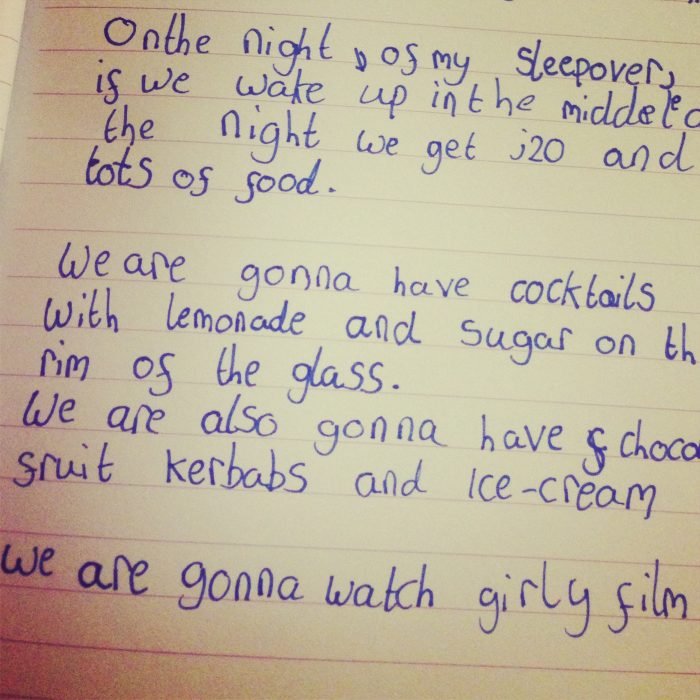 On the night of my sleepover,
if we wake up in the middele o
the night we get j20 and
lots of food.
We are gonna have cocktails
with lemonade and sugar on th
rim of the glass.
We are also gonna have choco
fruit kerbabs and ice-cream
we are gonna watch girly film